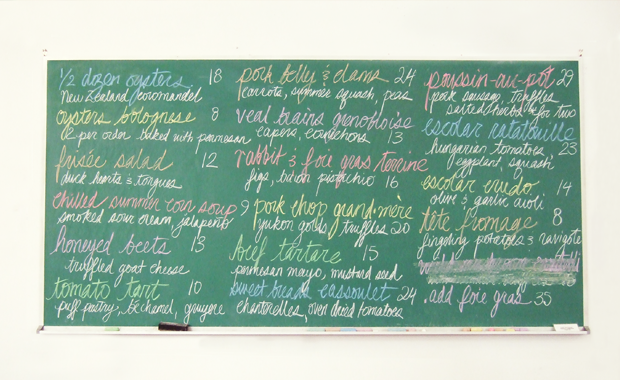 1/2 dozen oysters 18
New Zealand/coromandel
oysters bolognese 8
2 per order baked with parmesan
frisée salad 12
duck hearts & tongues
chilled summer corn soup 9
smoked sour cream jalapeño
honeyed beets 13
truffled goat cheese
tomato tart 10
puff pastry, bechamel, gruyere
pork belly & clams 24
carrots, summer squash, peas
veal brains grenobloise
capers, cornichons 13
rabbit & foie gras terrine
figs, pistachio 16
pork chop grand-mère
yukon golds truffles 20
beef tartare 15
parmesan mayo, mustard seed
sweetbreads cassoulet 24
chanterelles, oven dried tomatoes
poussin-au-pot 29
pork sausage, truffles
salted herbs for two
escolar ratatouille
hungarian tomatoes 23
eggplant, squash
escolar crudo 14
olive & garlic aioli
tête fromage 8
fingling potatoes & ravigote
add foie gras 35